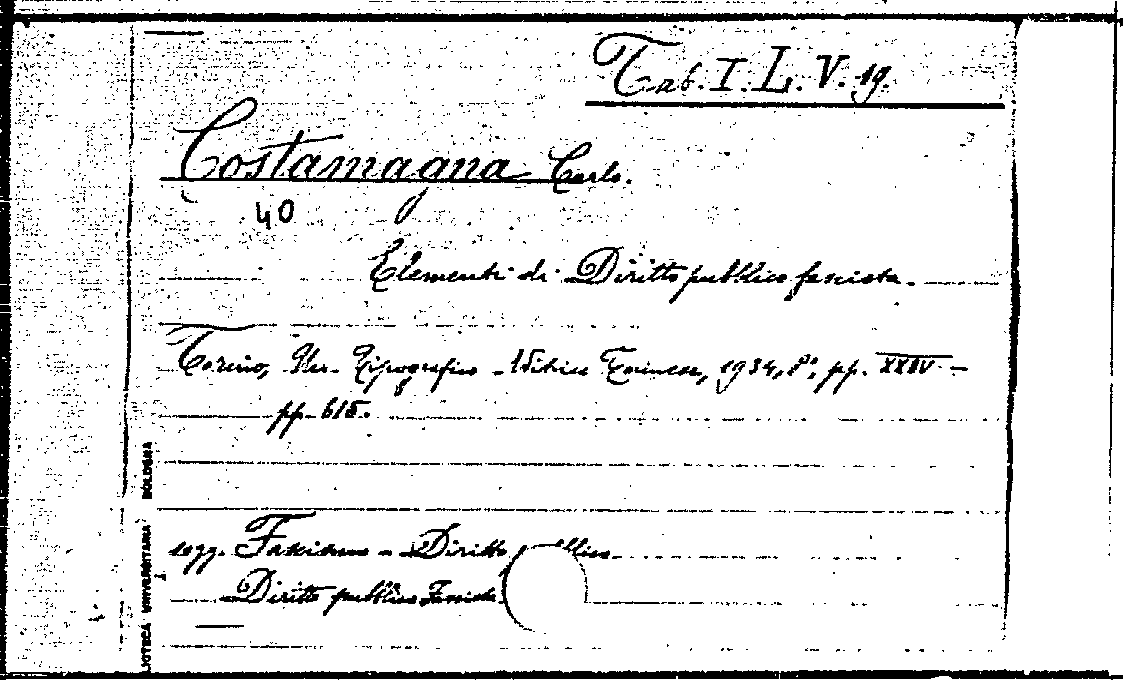 Tab. I. L. V. 19.
Costamagna Carlo.
40
Elementi di Diritto pubblico fascista.
Torino, Un. Tipografico - Editrice Torinese, 1934, 8°, pp. XXIV -
pp. 615.
sogg. Fascismo - Diritto pubblico
Diritto pubblico Fascista
BIBLIOTECA UNIVERSITARIA BOLOGNA